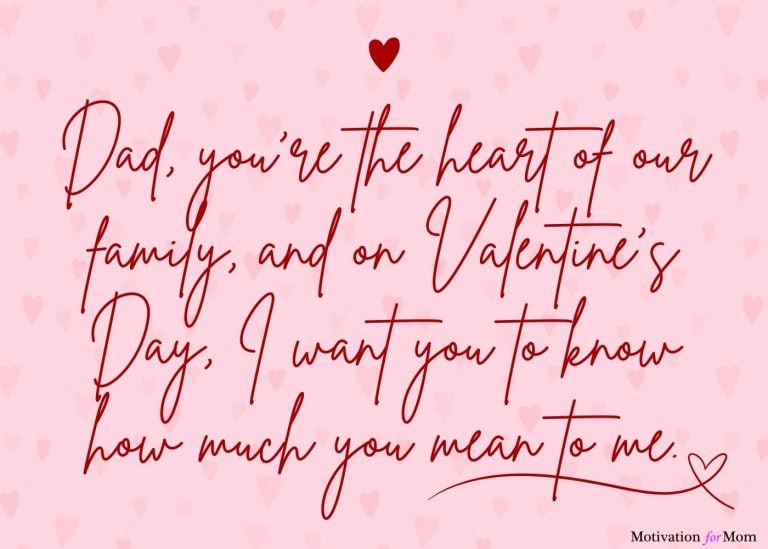 Dad, you're the heart of our
family, and on Valentine's
Day, I want you to know
how much you mean to me.
Motivation for Mom